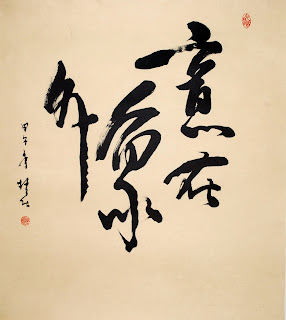 意在
象
外
甲午年